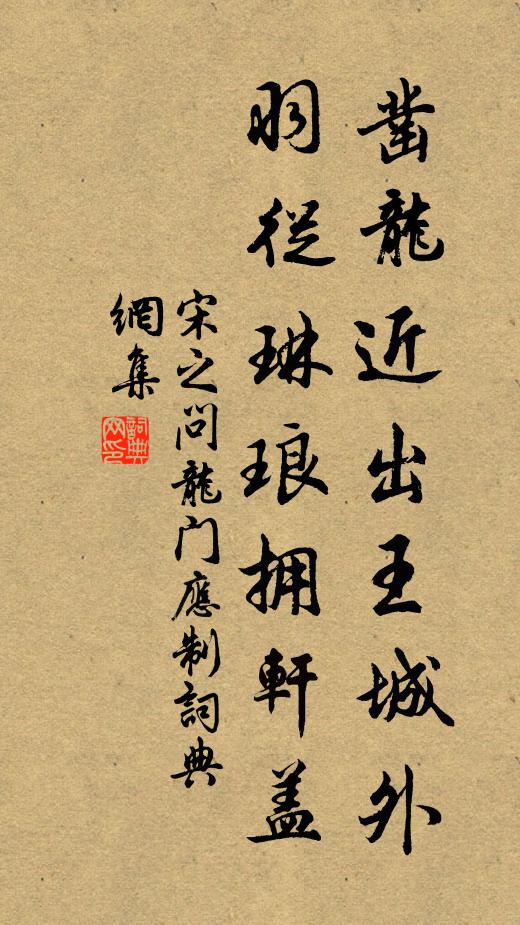 凿龍近出王城外
羽從琳琅拥軒盖
宋之问龍门應制詞典
網集
詞典网印